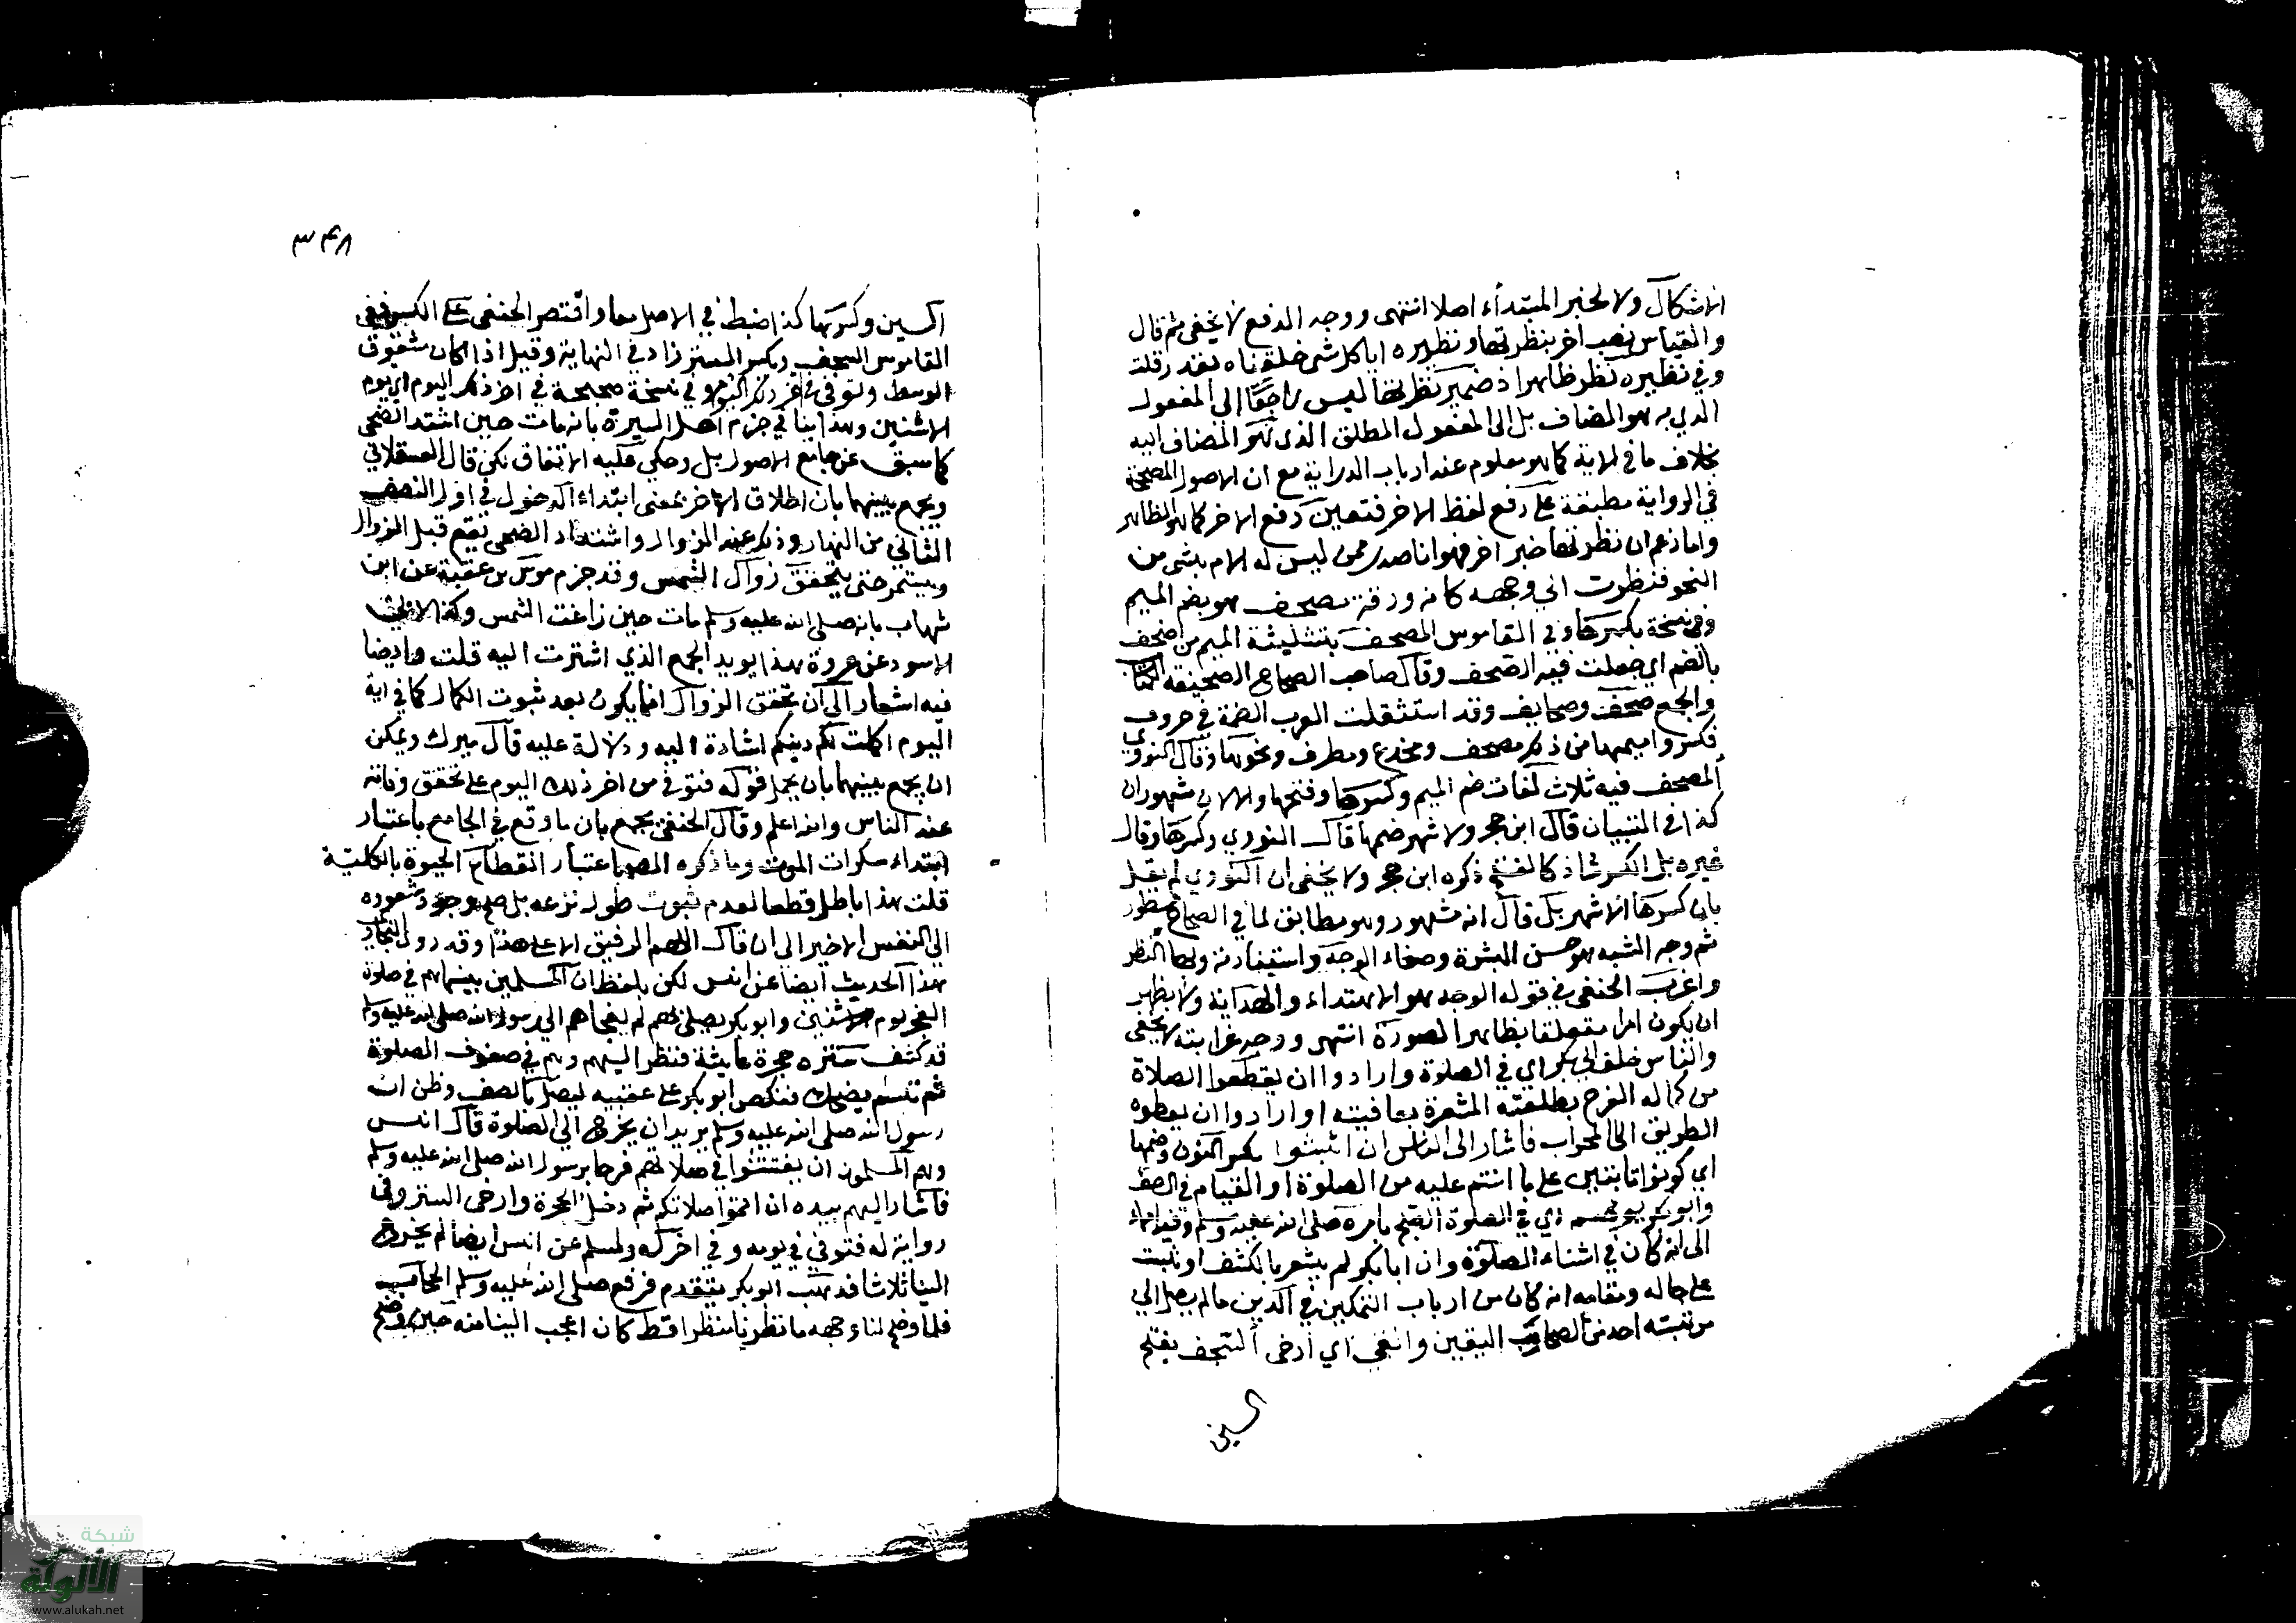 الاشكال ولا لخبر المبتداء اصلا انتهى ووجه الدفع لا يخفى ثم قال
والقياس نصب اخر بنظرتها ونظيره انا كل شئ خلقناه بقدر قلت
وفي نظيره نظر ظاهر اذ ضمير نظرتها ليس راجعا الى المفعول
الذي به هو المضاف بل الى المفعول المطلق الذي هو المضاف اليه
بخلاف ما في الاية كما هو معلوم عند ارباب الدراية مع ان الاصول المصححة
في الرواية مطبقة على رفع لفظ الاخر فتعين رفع الاخر كما هو الظاهر
واما زعم ان نظرتها خبر اخر فهو انما صدر ممن ليس له المام بشئ من
النحو فنظرت الى وجهه كانه ورقة مصحف هو بضم الميم
وفي نسخة بكسرها وفي القاموس المصحف بتثليثة الميم من اصحف
بالضم اي جعلت فيه الصحف وقال صاحب الصحاح الصحيفة الكتاب
والجمع صحف وصحايف وقد استثقلت العرب الضمة في حروف
فكسروا ميمها من ذلك مصحف ومخدع ومطرف ونحوها وقال النووي
المصحف فيه ثلاث لغات ضم الميم وكسرها وفتحها والاولان مشهوران
كذا في التبيان قال ابن حجر ولاشهر ضمها قال النووي وكسرها وقال
غيره بل الكسر شاذ كالفتح ذكره ابن حجر ولا يخفى ان النووي لم يقل
بان كسرها الاشهر بل قال انه مشهور وهو مطابق لما في الصحاح مسطور
ثم وجه الشبه هو حسن البشرة وصفاء الوجه واستنارته وبهاء النظر
واغرب الحنفي في قوله الوجه هو الاهتداء والهداية ولا يظهر
ان يكون امرا متعلقا بظاهر الصورة انتهى ووجه غرابته لا يخفى
والناس خلف ابي بكر اي في الصلوة وارادوا ان يقطعوا الصلاة
من كمال الفرح بطلعته المشعرة بعافيته او ارادوا ان يعطوه
الطريق الى المحراب فاشار الى الناس ان اثبتوا بكسر النون وضمها
اي كونوا ثابتين على ما انتم عليه من الصلوة او القيام في الصف
وابو بكر يؤمهم اي في الصلوة الصبح بامره صلى الله عليه وسلم وفيه ايماء
الى انه كان في اثناء الصلوة وان ابا بكر لم يشعر بالكشف او ثبت
على حاله ومقامه انه كان من ارباب التمكين في الدين ما لم يصل الى
مرتبته احد من الصحابة اليقين والقى اي ارخى السجف بفتح
السين
٣٤٨
السين وكسرها كذا ضبط في الاصل معا واقتصر الحنفي على الكسر ففي
القاموس السجف ويكسر الستر زاد في النهاية وقيل اذا كان مشقوق
الوسط وتوفي في اخر ذلك اليوم وفي نسخة صحيحة في اخر ذلك اليوم اي يوم
الاثنين وهذا ينافي جزم اهل السيرة بانه مات حين اشتد الضحى
كما سبق عن جامع الاصول بل وحكي عليه الاتفاق لكن قال العسقلاني
ويجمع بينهما بان اطلاق الاخر بمعنى ابتداء الدخول في اول النصف
الثاني من النهار وذلك عند الزوال واشتداد الضحى يقع قبل الزوال
ويستمر حتى يتحقق زوال الشمس وقد جزم موسى بن عقبة عن ابن
شهاب بانه صلى الله عليه وسلم مات حين زاغت الشمس وكذا لابي
الاسود عن عروة بهذا يويد الجمع الذي اشرت اليه قلت وايضا
فيه اشعار الى ان تحقق الزوال انما يكون بعد ثبوت الكمال كما في اية
اليوم اكملت لكم دينكم اشارة اليه ودلالة عليه قال ميرك ويمكن
ان يجمع بينهما بان يحمل قوله فتوفي من اخر ذلك اليوم على تحقق وفاته
عند الناس والله اعلم وقال الحنفي يجمع بان ما وقع في الجامع باعتبار
ابتداء سكرات الموت وما ذكره المص باعتبار انقطاع الحيوة بالكلية
قلت هذا باطل قطعا لعدم ثبوت طول نزعه بل صح وجود شعوره
الى النفس الاخير الى ان قال اللهم الرفيق الاعلى هذا وقد روى البخاري
هذا الحديث ايضا عن انس لكن بلفظ ان المسلمين بينما هم في صلاة
الفجر يوم الاثنين وابو بكر يصلي لهم لم يفجاهم الا رسول الله صلى الله عليه وسلم
قد كشف ستره حجرة عايشة فنظر اليهم وهم في صفوف الصلوة
ثم تبسم يضحك فنكص ابو بكر على عقبيه ليصل الصف وظن ان
رسول الله صلى الله عليه وسلم يريد ان يخرج الى الصلوة قال انس
وهم المسلمون ان يفتتنوا في صلاتهم فرحا برسول الله صلى الله عليه وسلم
فاشار اليهم بيده ان اتموا صلاتكم ثم دخل الحجرة وارخى الستر وفي
رواية له فتوفي في يومه وفي اخر له ولمسلم عن انس ايضا لم يخرج
الينا ثلاثا فذهب ابو بكر يتقدم فرفع صلى الله عليه وسلم الحجاب
فلما وضح لنا وجهه ما نظرنا منظرا قط كان اعجب الينا منه حين وضح
شبكة
الألوكة
www.alukah.net